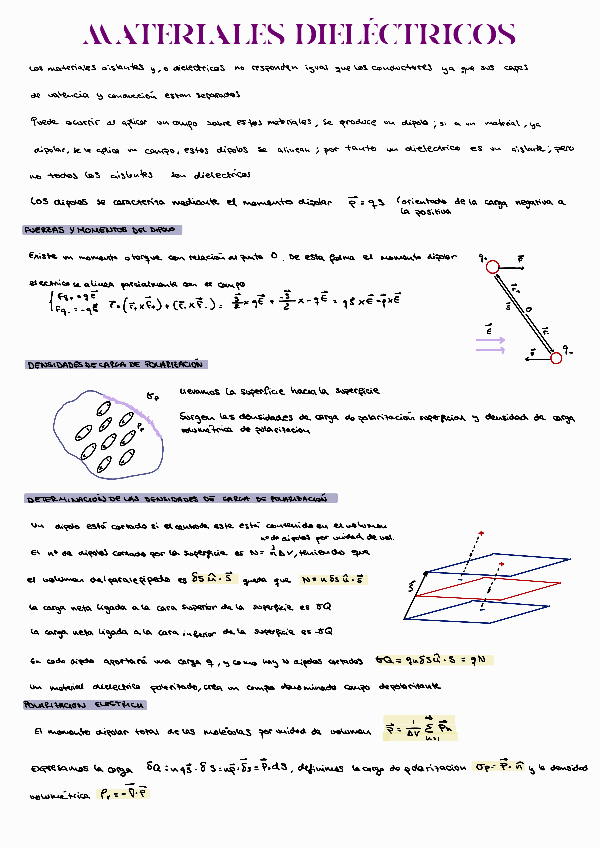 MATERIALES DIELÉCTRICOS
Los materiales aislantes y, o dielectricos no responden igual que los conductores ya que sus capas
de valencia y conducción estan separados
Puede ocurrir al aplicar un campo sobre estos materiales, se produce un dipolo; si a un material, ya
dipolar, se le aplica un campo, estos dipolos se alinean; por tanto un dielectrico es un aislante; pero
no todos los aislantes son dielectricos
Los dipolos se caracteriza mediante el momento dipolar p⃗ = qδ⃗ (orientado de la carga negativa a
la positiva
FUERZAS Y MOMENTOS DEL DIPOLO
Existe un momento o torque con relación al punto O. De esta forma el momento dipolar
electrico se alinea parcialmente con el campo
Fq+ = qE⃗
Fq- = -qE⃗
τ⃗ = (r⃗+ x F⃗+) + (r⃗- x F⃗-) = δ⃗/2 x qE⃗ + -δ⃗/2 x -qE⃗ = qδ⃗ x E⃗ = p⃗ x E⃗
q+
F⃗
r⃗+
δ⃗
O
r⃗-
E⃗
q-
DENSIDADES DE CARGA DE POLARIZACIÓN
σp
ρp
Llevamos la superficie hacia la superficie
Surgen las densidades de carga de polarización superficial y densidad de carga
volumétrica de polarizacion
DETERMINACIÓN DE LAS DENSIDADES DE CARGA DE POLARIZACIÓN
Un dipolo está cortado si el centro de este está contenido en el volumen
nº de dipolos por unidad de vol.
El nº de dipolos cortado por la superficie es N = nΔV, teniendo que
el volumen del paralepípedo es δS û · δ⃗ queda que N = n δS û · δ⃗
la carga neta ligada a la cara superior de la superficie es δQ
la carga neta ligada a la cara inferior de la superficie es -δQ
δ⃗
En cada dipolo aportará una carga q, y como hay N dipolos cortados δQ = qnδS û · δ = qN
Un material dielectrico polarizado, crea un campo denominado campo depolarizante
POLARIZACION ELECTRICA
El momento dipolar total de las moléculas por unidad de volumen P⃗ = 1/ΔV Σ p⃗n
n=1
Expresamos la carga δQ = nqδ⃗ · δS = np⃗ · δS = P⃗ · dS, definimos la carga de polarizacion σp = P⃗ · n⃗ y la densidad
volumétrica ρp = -∇⃗ · P⃗